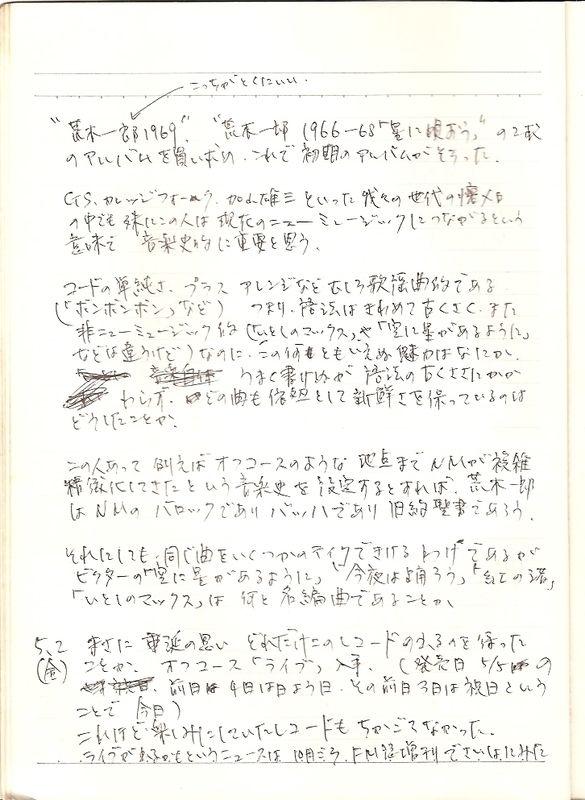 こっちがとくにいい.
"荒木一郎1969", "荒木一郎 1966-68「空に唄おう」" の2枚
のアルバムを買い求め, これで初期のアルバムがそろった.
G.S, カレッジフォーク, 加山雄三といった我々の世代の懐メロ
の中でも殊にこの人は現在のニューミュージックにつながるという
意味で 音楽史的に重要と思う.
コードの単純さ, プラス アレンジなどむしろ歌謡曲的である
(「ボンボンボン」など) つまり, 語法はきわめて古くさく, また
非ニューミュージック的 (「いとしのマックス」や「空に星があるように」
などは違うけど) なのに, この何ともいえぬ魅力はなにか.
うまく書けぬが 語法の古くささにかか
わらず, どの曲も依然として新鮮さを保っているのは
どうしたことか.
この人あって 例えばオフコースのような 地点までNMが複雑
精緻化してきたという音楽史を設定するとすれば, 荒木一郎
はNMのバロックでありバッハであり旧約聖書であろう.
それにしても, 同じ曲をいくつかのテイクできける わけであるが
ビクターの「空に星があるように」「今夜は踊ろう」「紅の渚」
「いとしのマックス」は 何と名編曲であることか.
5.2 まさに 垂涎の思い どれだけこのレコードの出るのを待った
(金) ことか. オフコース「ライブ」入手. (発売日 5/5 の
前日は4日は日よう日, その前日3日は祝日という
ことで 今日)
これほど楽しみにしていたレコードもちかごろなかった.
ライブが出るかもというニュースは 10月ごろ, FM誌増刊でさいしょにみた